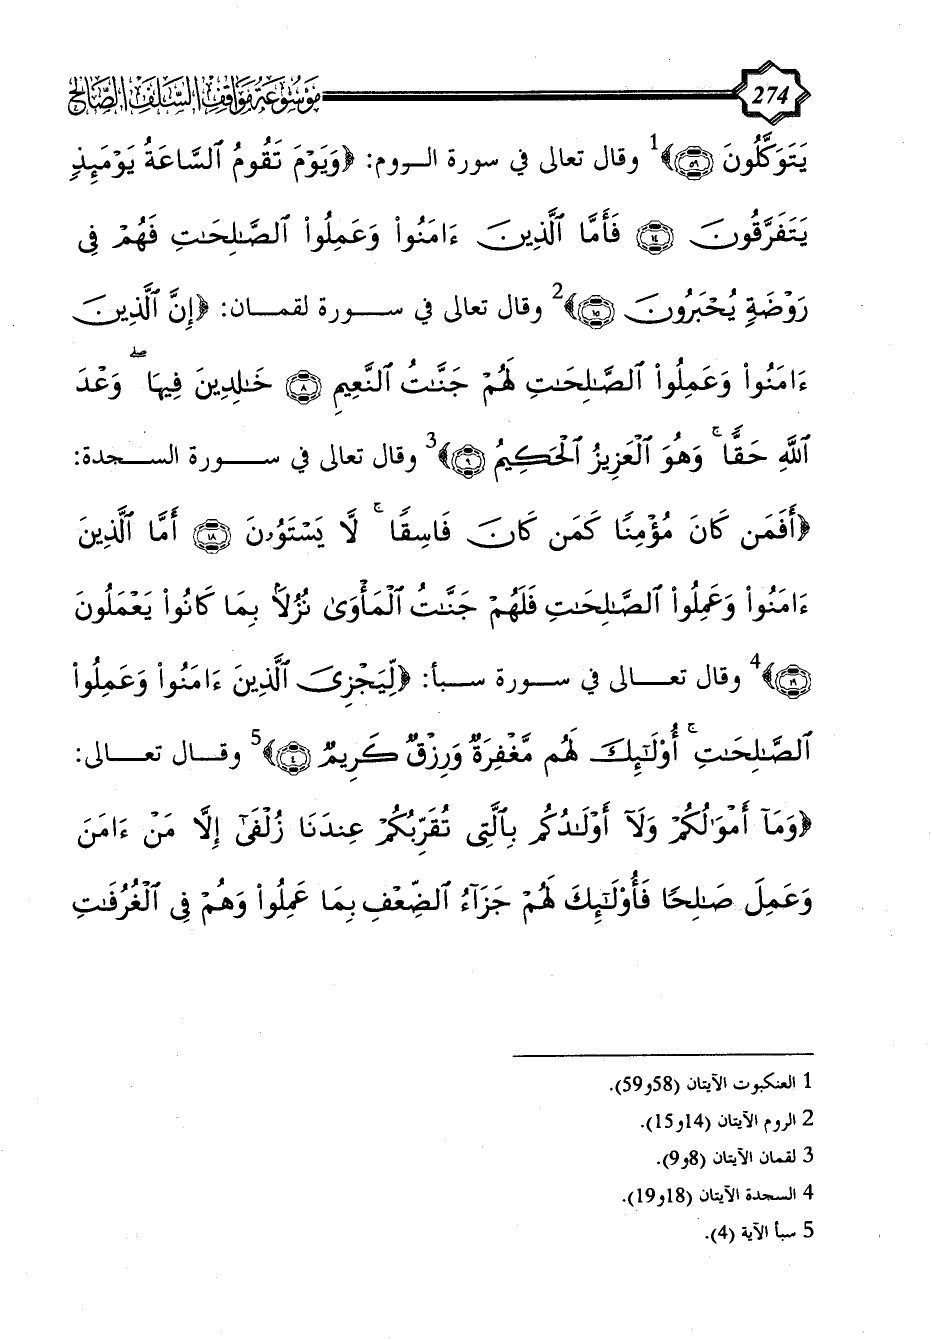 موسوعة مواقف السلف الصالح
274
يَتَوَكَّلُونَ ﴿٥٩﴾﴾1 وقال تعالى في سورة الروم: ﴿وَيَوْمَ تَقُومُ ٱلسَّاعَةُ يَوْمَئِذٍ
يَتَفَرَّقُونَ ﴿١٤﴾ فَأَمَّا ٱلَّذِينَ ءَامَنُوا۟ وَعَمِلُوا۟ ٱلصَّـٰلِحَـٰتِ فَهُمْ فِى
رَوْضَةٍ يُحْبَرُونَ ﴿١٥﴾﴾2 وقال تعالى في سورة لقمان: ﴿إِنَّ ٱلَّذِينَ
ءَامَنُوا۟ وَعَمِلُوا۟ ٱلصَّـٰلِحَـٰتِ لَهُمْ جَنَّـٰتُ ٱلنَّعِيمِ ﴿٨﴾ خَـٰلِدِينَ فِيهَا ۖ وَعْدَ
ٱللَّهِ حَقًّا ۚ وَهُوَ ٱلْعَزِيزُ ٱلْحَكِيمُ ﴿٩﴾﴾3 وقال تعالى في سورة السجدة:
﴿أَفَمَن كَانَ مُؤْمِنًا كَمَن كَانَ فَاسِقًا ۚ لَّا يَسْتَوُۥنَ ﴿١٨﴾ أَمَّا ٱلَّذِينَ
ءَامَنُوا۟ وَعَمِلُوا۟ ٱلصَّـٰلِحَـٰتِ فَلَهُمْ جَنَّـٰتُ ٱلْمَأْوَىٰ نُزُلًۢا بِمَا كَانُوا۟ يَعْمَلُونَ
﴿١٩﴾﴾4 وقال تعالى في سورة سبأ: ﴿لِّيَجْزِىَ ٱلَّذِينَ ءَامَنُوا۟ وَعَمِلُوا۟
ٱلصَّـٰلِحَـٰتِ ۚ أُو۟لَـٰٓئِكَ لَهُم مَّغْفِرَةٌ وَرِزْقٌ كَرِيمٌ ﴿٤﴾﴾5 وقال تعالى:
﴿وَمَآ أَمْوَٰلُكُمْ وَلَآ أَوْلَـٰدُكُم بِٱلَّتِى تُقَرِّبُكُمْ عِندَنَا زُلْفَىٰٓ إِلَّا مَنْ ءَامَنَ
وَعَمِلَ صَـٰلِحًا فَأُو۟لَـٰٓئِكَ لَهُمْ جَزَآءُ ٱلضِّعْفِ بِمَا عَمِلُوا۟ وَهُمْ فِى ٱلْغُرُفَـٰتِ
1 العنكبوت الآيتان (58و59).
2 الروم الآيتان (14و15).
3 لقمان الآيتان (8و9).
4 السجدة الآيتان (18و19).
5 سبأ الآية (4).